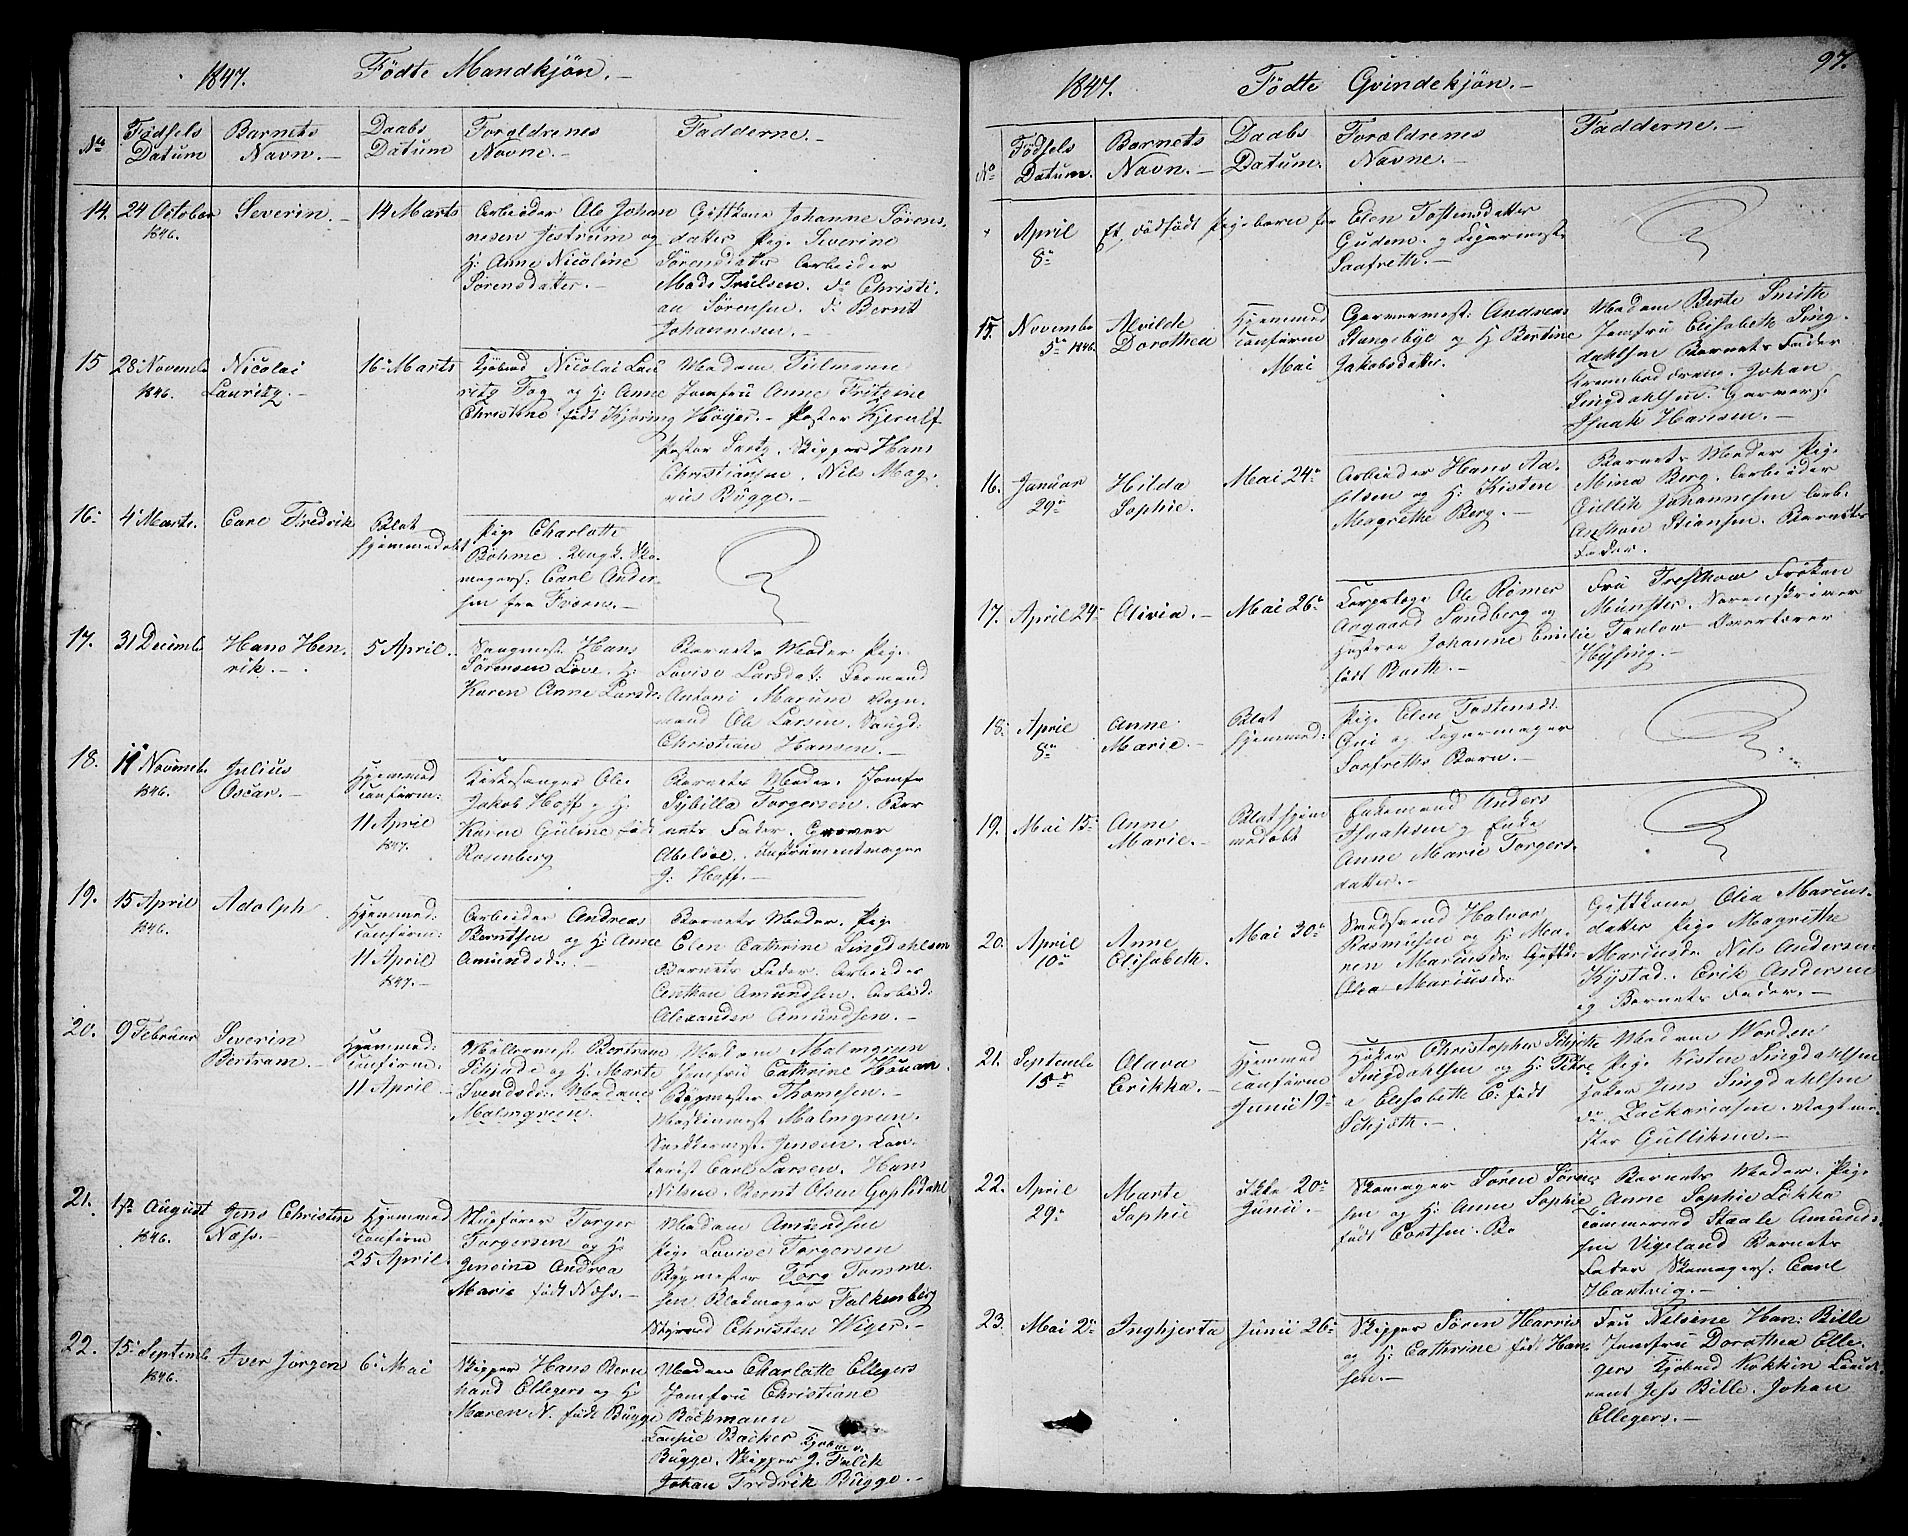 1847. Fødte Mandkjøn. —
No Fødsels Datum Barnets Navn. — Daabs Datum Forældrenes Navne. — Fadderne. —
14. 24 October 1846. Severin. — 14 Marts
Arbeider Ole Johan
nesen Jestrum og
H: Anne Nicoline
Sørensdatter. —
Giftkone Johanne Sørens
datter Pige Severine
Sørensdatter Arbeider
Mads Trulsen. do Christi
an Sørensen. d: Bernt
Johannesen. —
15 28 Novemb 1846. Nicolai Lauritz. — 16 Marts
Kjøbmd Nicolai Lau
ritz Fog og H: Anne
Christine født Kjøring
Madam Tilmann
Jomfru Anne Fritzine
Høyer. — Pastor Kjerulf
Pastor Lartz. Skipper Hans
Christiansen. Nils Mag
nus Bugge. —
16 4 Marts. Carl Fredrik Blot hjemmedøbt
Pige Charlotte
Böhme. Ungk. Sko
magers: Carl Ander
sen fra Fværn. —
17. 31 Decemb Hans Hen
rik. — 5 April.
Saugmest. Hans
Sørensen Løve. H:
Karen Anne Larsdr
Barnets Moder Pige
Lovise Larsdat: Formand
Antoni Marum Vogn
mand Ole Larsen. Saugd
Christian Hansen. —
18. 11 Novemb 1846. Julius Oscar. — Hjemmed Confirm: 11 April 1847.
Kirkesanger Ole
Jakob Hoff og H:
Karen Guline født
Rosenberg
Barnets Moder. Jomfr
Sybilla Torgersen. Bar
nets Fader. Graver
Abelsøe. Instrumentmager
J: Hoff. —
19. 15 April 1846. Adolph Hjemmed: Confirm: 11 April 1847. —
Arbeider Andreas
Berntsen og H: Anne
Amundsdr. —
Barnets Moder. Pige
Elen Cathrine Lingdahlsen
Barnets Fader. Arbeider
Anthon Amundsen. Arbeid:
Alexander Amundsen. —
20. 9 Februar Severin Bertram. — Hjemmed: Confirm: 11 April —
Møllermest Bertram
Skjude og H: Marte
Svendsdr. Madam
Malmgreen.
Madam Malmgrun
Jomfru Cathrine Houan.
Bygmester Thomesen. —
Maskinmest Malmgrun.
Snedkermest. Jensen. Con
torist Carl Larsen. Hans
Nilsen. Bernt Olsen Gopledahl
21. 17 August 1846. Jens Christen Næss. — Hjemmed Confirm 25 April.
Skipfører Torger
Torgersen og H:
Jensine Andrea
Marie født Næss. —
Madam Amundsen
Pige Lovise Torgersen
Bygmester Torg Tomme
sen. Blokmager Falkenberg
Styrmd Christen Wiger. —
22. 15 Septemb 1846. Iver Jørgen 6 Mai
Skipper Hans Bern
hard Ellegers og H:
Maren N. født Bugge
Madam Charlotte Ellegers
Jomfru Christiane
Böckmann
Consul Backer Kjøbm v.
Bugge. Skipper J. Falck
Johan Fredrik Bugge. —
97.
1847. Fødte Qvindekjøn. —
No Fødsels Datum. Barnets Navn. — Daabs Datum. Forældrenes Navne. — Fadderne. —
April 8 Et dødfødt Pigebarn for Elen Tostensdatter
Gudem. og Eigermest
Saafreth. —
15. Novembe 5 1846. Alvilde Dorothea Hjemmed Confirm Mai
Garvermest: Andreas
Stangebye og H Bertine
Jakobsdatter
Madam Berte Smith
Jomfru Elisabeth Ling
dahlsen Barnets Fader
Johan
Lingdahlsen. Garvers:
Isaak Hansen. —
16. Januar 29 Hilda Sophie. Mai 24
Arbeider Hans Aa
selsen og H: Kisten
Magrethe Berg. —
Barnets Moder Pige
Mina Berg. Arbeider
Gullik Johannesen Arb.
Anthon Stiansen. Barnets
Fader.
17. April 24 Olivia. — Mai 26
Corpslæge Ole Rømer
Aagaard Sandberg og
Hustroe Johanne Emilie
født Barth. —
Fru Treschow Frøken
Münster. Sorenskriver
Tanlow Overtoller
Hysing. —
18. April 8 Anne Marie. — Blot hjemmed:
Pige Elen Tostensd:
Qui og Eigermager
Sorfreths Barn. —
19. Mai 15 Anne Marie. — Blot hjem medøbt
Enkemand Anders
Isaaksen og Enke
Anne Marie Torgers
datter. —
20. April 10 Anne Elisabeth. Mai 30
Sædsvend Halvor
Rasmusen og H: Ma
ren Mariusdr Giftk
Olea Mariusdr
Giftkone Olea Marius
datter Pige Magrethe
Mariusdr Nils Andersen
Kystad. Erik Andersen
og Barnets Fader. —
21. Septembe 15 Olava Erikka. Hjemmed Confirm Junii 19
Høker Christopher Schjøtt
Lingdahlsen og H: Petre
a Elisabette E: født
Schjøth. —
Madam Worden
Pige Kisten Lingdahlsen
Høker Jens Lingdahlsen
do Zackariasen. Vagtme
ster Gulliksen. —
22. April 29 Marte Sophie Ikke 20 Junii. —
Skomager Søren Søren
sen og H: Anne Sophie
født Cortsen. Bø
Barnets Moder. Pige
Anne Sophie Løkka
Tømmermd Staale Amunds:
sen Vigeland Barnets
Fader Skomagers: Carl
Hartvig. —
23. Mai 2 Inghjerta Junii 26
Skipper Søren Harris
og H: Cathrine født Han
sen. —
Fru Nilsine Han: Bille
Jomfru Dorothea Elle
gers Kjøbmd Nokkin Lieut
nant Jess Bille. Johan
Ellegers. —